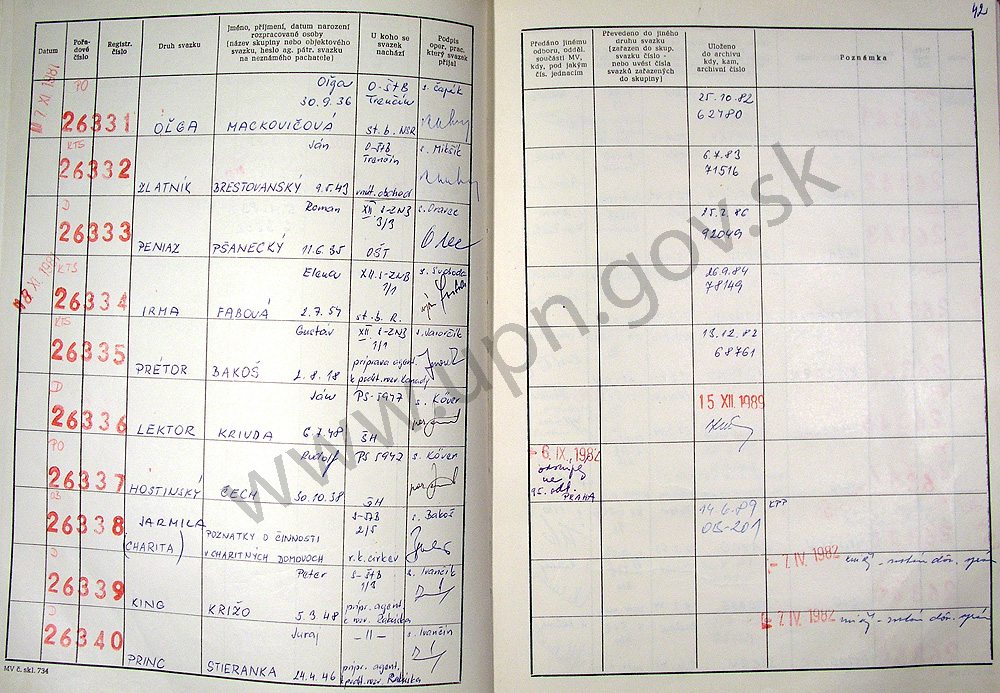 42
Datum
Pořadové číslo
Registr. číslo
Druh svazku
Jméno, příjmení, datum narození rozpracované osoby (název skupiny nebo objektového svazku, heslo ag. pátr. svazku na neznámého pachatele)
U koho se svazek nachází
Podpis oper. prac. který svazek přijal
Předáno jinému odboru, odděl. součásti MV, kdy, pod jakým čís. jednacím
Převedeno do jiného druhu svazku (zařazen do skup. svazku číslo - nebo uvést čísla svazků zařazených do skupiny)
Uloženo do archivu kdy, kam, archivní číslo
Poznámka
PO
26331
OĽGA
Oľga
MACKOVIČOVÁ
30.9.36
O-ŠtB
Trenčín
st. b. NSR
s. Čapák
25.10.82
62780
KTS
26332
ZLATNÍK
Ján
BREŠTOVANSKÝ 9.5.43
O-ŠtB
Trenčín
vnút. obchod
s. Mikšík
6.7.83
71516
D
26333
PENIAZ
Roman
PŠANECKÝ 11.6.35
XII. S-ZNB
3/3
OŠT
s. Oravec
25.2.86
92049
KTS
26334
IRMA
Elena
FABOVÁ 2.7.57
XII. S-ZNB
1/1
st. b. R.
s. Svoboda
26.9.84
78149
KTS
26335
PRÉTOR
Gustav
BAKOŠ 2.8.18
XII. S-ZNB
1/1
príprava agent.
13.12.82
68761
D
26336
LEKTOR
Ján
KRIVDA 6.7.48
PS-5947
ŠH
s. Kóver
15. XII. 1989
PO
26337
HOSTINSKÝ
Rudolf
ČECH 30.10.38
PS 5947
ŠH
s. Kóver
- 6. IX. 1982
PRAHA
OB
26338
JARMILA
(CHARITA)
POZNATKY O ČINNOSTI
V CHARITNÝCH DOMOVOCH
S-ŠtB
2/5
r.k. cirkev
s. Bakoš
14.6.89
OB-201
KPP
D
26339
KING
Peter
KRIŽO 5.3.48
S-ŠtB
1/3
prípr. agent.
k rozv. Rakúska
s. Ivančík
- 7. IV. 1982
D
26340
PRINC
Juraj
STIERANKA 24.4.46
- 11 -
prípr. agent.
k polit. rozv. Rakúska
s. Ivančin
- 7. IV. 1982
MV č. skl. 734
www.upn.gov.sk